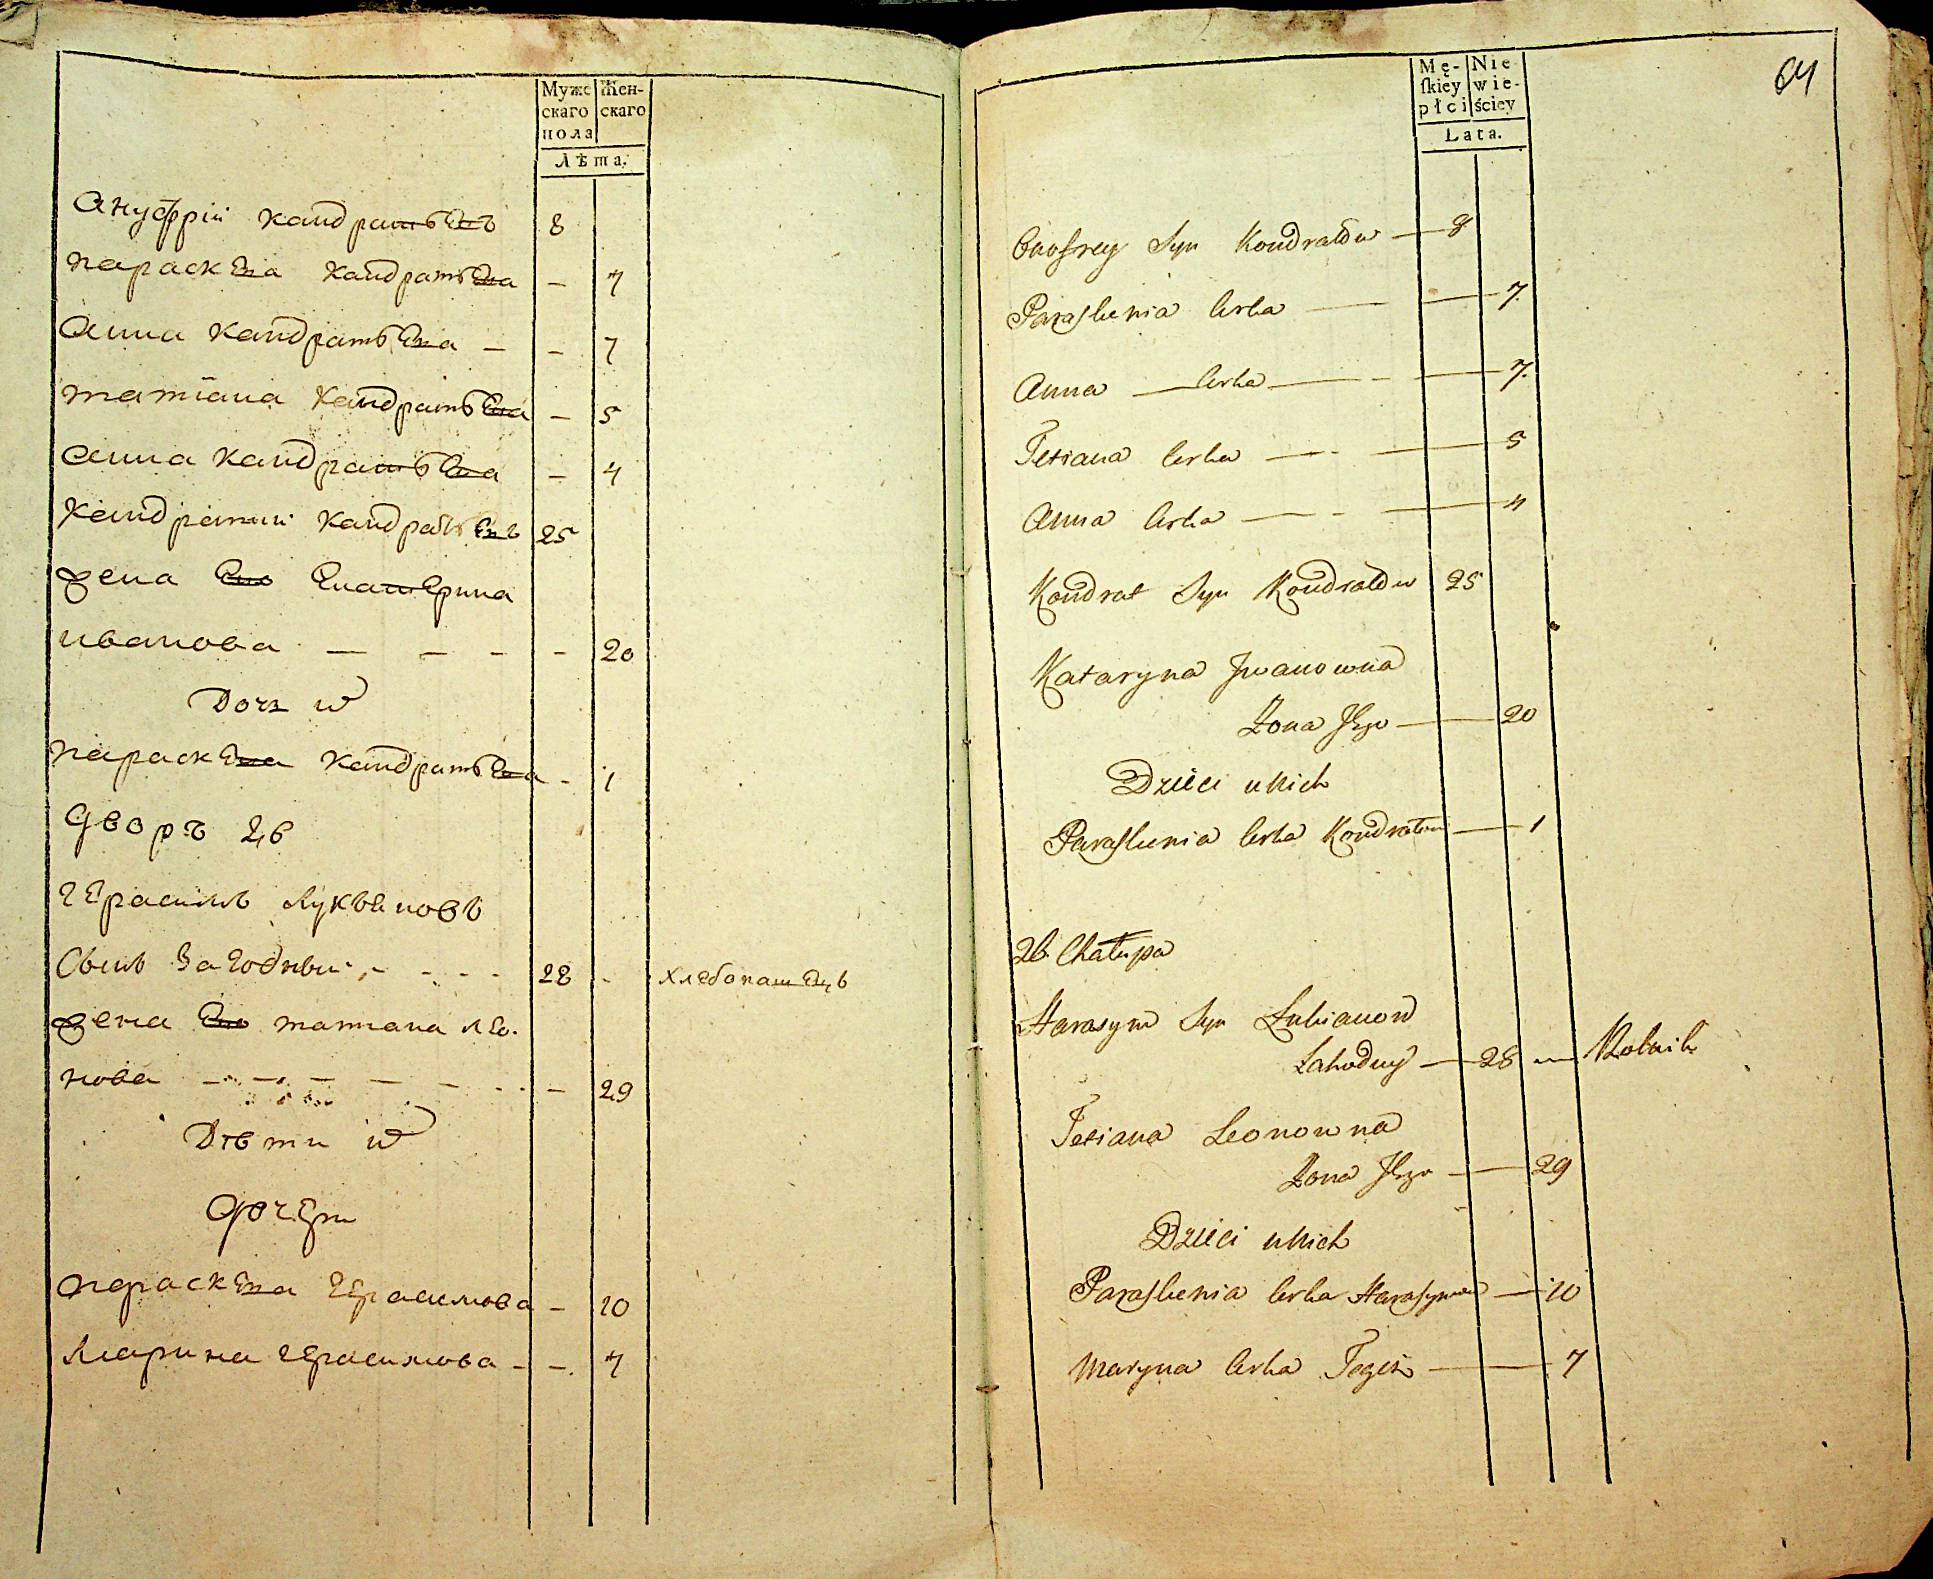 Муже
скаго
пола
Жен-
скаго
Лѣта.
Ануфрій Кандратьевъ 8
Параскева Кандратьева - 7
Анна Кандратьева - - 7
Татіана Кандратьева - 5
Анна Кандратьева - 4
Кандратий Кандратьевъ 25
жена Ево Екатерина
иванова - - - - 20
Дочь ихъ
Параскева Кандратьева - 1
Дворъ 26
Герасимъ Лукьяновъ
Сынъ Загодный - - - 28 - хлебопашецъ
жена Ево татиана лео-
нова - - - - - - - 29
Дѣти ихъ
Дочери
Параскева Герасимова - 10
Марина Герасимова - - 7
64
Mę-
skiey
płci
Nie
wie-
ściey
Lata.
Onofrey Syn Kondratow — 8
Paraskewia Corka — — 7.
Anna — Corka — - — 7.
Tetiana Corka — - — 5
Anna Corka — - — 4
Kondrat Syn Kondratow 25
Kataryna Jwanowna
Zona Jego — 20
Dzieci u Nich
Paraskewia Corka Kondratow — 1
26. Chałupa
Harasym Syn Lukianow
Zahodny — 28 — Rolnik
Tetiana Leonowna
Zona Jego — 29
Dzieci u Nich
Paraskewia Corka Harasymowa — 10
Maryna Corka Tegoż — 7